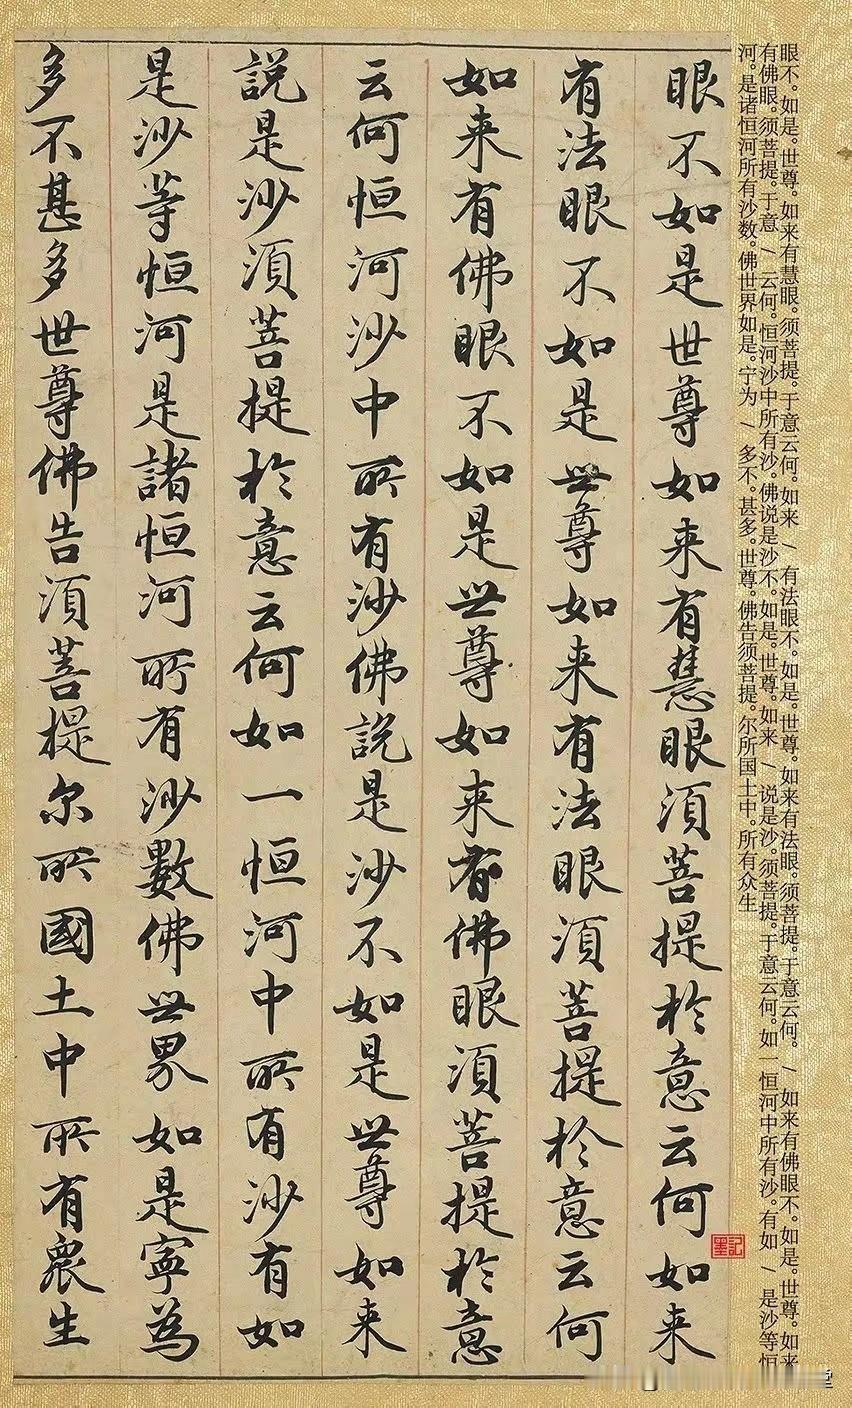 眼不。如是。世尊。如来有慧眼。须菩提。于意云何。如来 / 有法眼不。如是。世尊。如来有法眼。须菩提。于意云何。 / 如来有佛眼不。如是。世尊。如来
有佛眼。须菩提。于意 / 云何。恒河沙中所有沙。佛说是沙不。如是。世尊。如来 / 说是沙。须菩提。于意云何。如一恒河中所有沙。有如 / 是沙等恒
河。是诸恒河所有沙数。佛世界如是。宁为 / 多不。甚多。世尊。佛告须菩提。尔所国土中。所有众生
墨記
眼不如是世尊如来有慧眼須菩提於意云何如来
有法眼不如是世尊如来有法眼須菩提於意云何
如来有佛眼不如是世尊如来有佛眼須菩提於意
云何恒河沙中所有沙佛說是沙不如是世尊如来
說是沙須菩提於意云何如一恒河中所有沙有如
是沙等恒河是諸恒河所有沙數佛世界如是寧為
多不甚多世尊佛告須菩提尔所國土中所有眾生